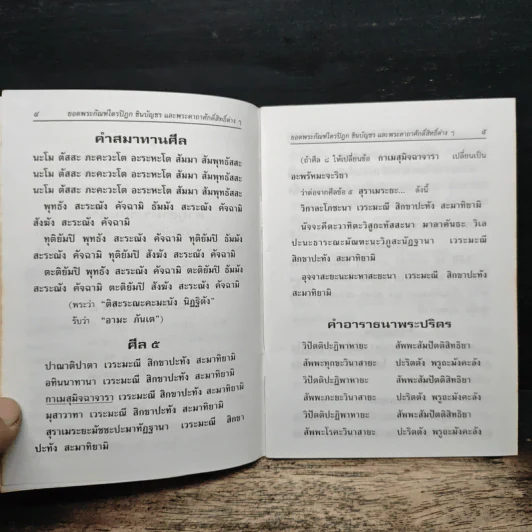 ๔ ยอดพระกัณฑ์ไตรปิฎก ชินบัญชร และพระคาถาศักดิ์สิทธิ์ต่าง ๆ
คำสมาทานศีล
นะโม ตัสสะ ภะคะวะโต อะระหะโต สัมมา สัมพุทธัสสะ
นะโม ตัสสะ ภะคะวะโต อะระหะโต สัมมา สัมพุทธัสสะ
นะโม ตัสสะ ภะคะวะโต อะระหะโต สัมมา สัมพุทธัสสะ
พุทธัง สะระณัง คัจฉามิ ธัมมัง สะระณัง คัจฉามิ
สังฆัง สะระณัง คัจฉามิ
ทุติยัมปิ พุทธัง สะระณัง คัจฉามิ ทุติยัมปิ ธัมมัง
สะระณัง คัจฉามิ ทุติยัมปิ สังฆัง สะระณัง คัจฉามิ
ตะติยัมปิ พุทธัง สะระณัง คัจฉามิ ตะติยัมปิ ธัมมัง
สะระณัง คัจฉามิ ตะติยัมปิ สังฆัง สะระณัง คัจฉามิ
(พระว่า "ติสะระณะคะมะนัง นิฏฐิตัง"
รับว่า "อามะ ภันเต")
ศีล ๕
ปาณาติปาตา เวระมะณี สิกขาปะทัง สะมาทิยามิ
อทินนาทานา เวระมะณี สิกขาปะทัง สะมาทิยามิ
กาเมสุมิจฉาจารา เวระมะณี สิกขาปะทัง สะมาทิยามิ
มุสาวาทา เวระมะณี สิกขาปะทัง สะมาทิยามิ
สุราเมระยะมัชชะปะมาทัฏฐานา เวระมะณี สิกขา
ปะทัง สะมาทิยามิ
ยอดพระกัณฑ์ไตรปิฎก ชินบัญชร และพระคาถาศักดิ์สิทธิ์ต่าง ๆ ๕
(ถ้าศีล ๘ ให้เปลี่ยนข้อ กาเมสุมิจฉาจารา เปลี่ยนเป็น
อะพรัหมะจะริยา
ว่าต่อจากศีลข้อ ๕ สุราเมระยะ... ดังนี้
วิกาละโภชะนา เวระมะณี สิกขาปะทัง สะมาทิยามิ
นัจจะคีตะวาทิตะวิสูกะทัสสะนา มาลาคันธะ วิเล
ปะนะธาระณะมัณฑะนะวิภูสะนัฏฐานา เวระมะณี
สิกขาปะทัง สะมาทิยามิ
อุจจาสะยะนะมะหาสะยะนา เวระมะณี สิกขาปะทัง
สะมาทิยามิ
คำอาราธนาพระปริตร
วิปัตติปะฏิพาหายะ สัพพะสัมปัตติสิทธิยา
สัพพะทุกขะวินาสายะ ปะริตตัง พรูถะมังคะลัง
วิปัตติปะฏิพาหายะ สัพพะสัมปัตติสิทธิยา
สัพพะภะยะวินาสายะ ปะริตตัง พรูถะมังคะลัง
วิปัตติปะฏิพาหายะ สัพพะสัมปัตติสิทธิยา
สัพพะโรคะวินาสายะ ปะริตตัง พรูถะมังคะลัง